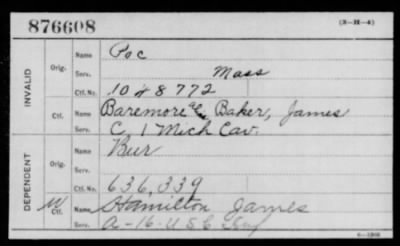 876608 (3-H-4)
INVALID
Orig. Name Poc
Serv. Mass
Ctf. No. 1048772
Ctf. Name Baremore Baker, James
Serv. C, 1 Mich Cav.
DEPENDENT
Orig. Name Bur
Serv.
Ctf. No. 636,339
W Ctf. Name Hamilton James
Serv. A-16-U S C